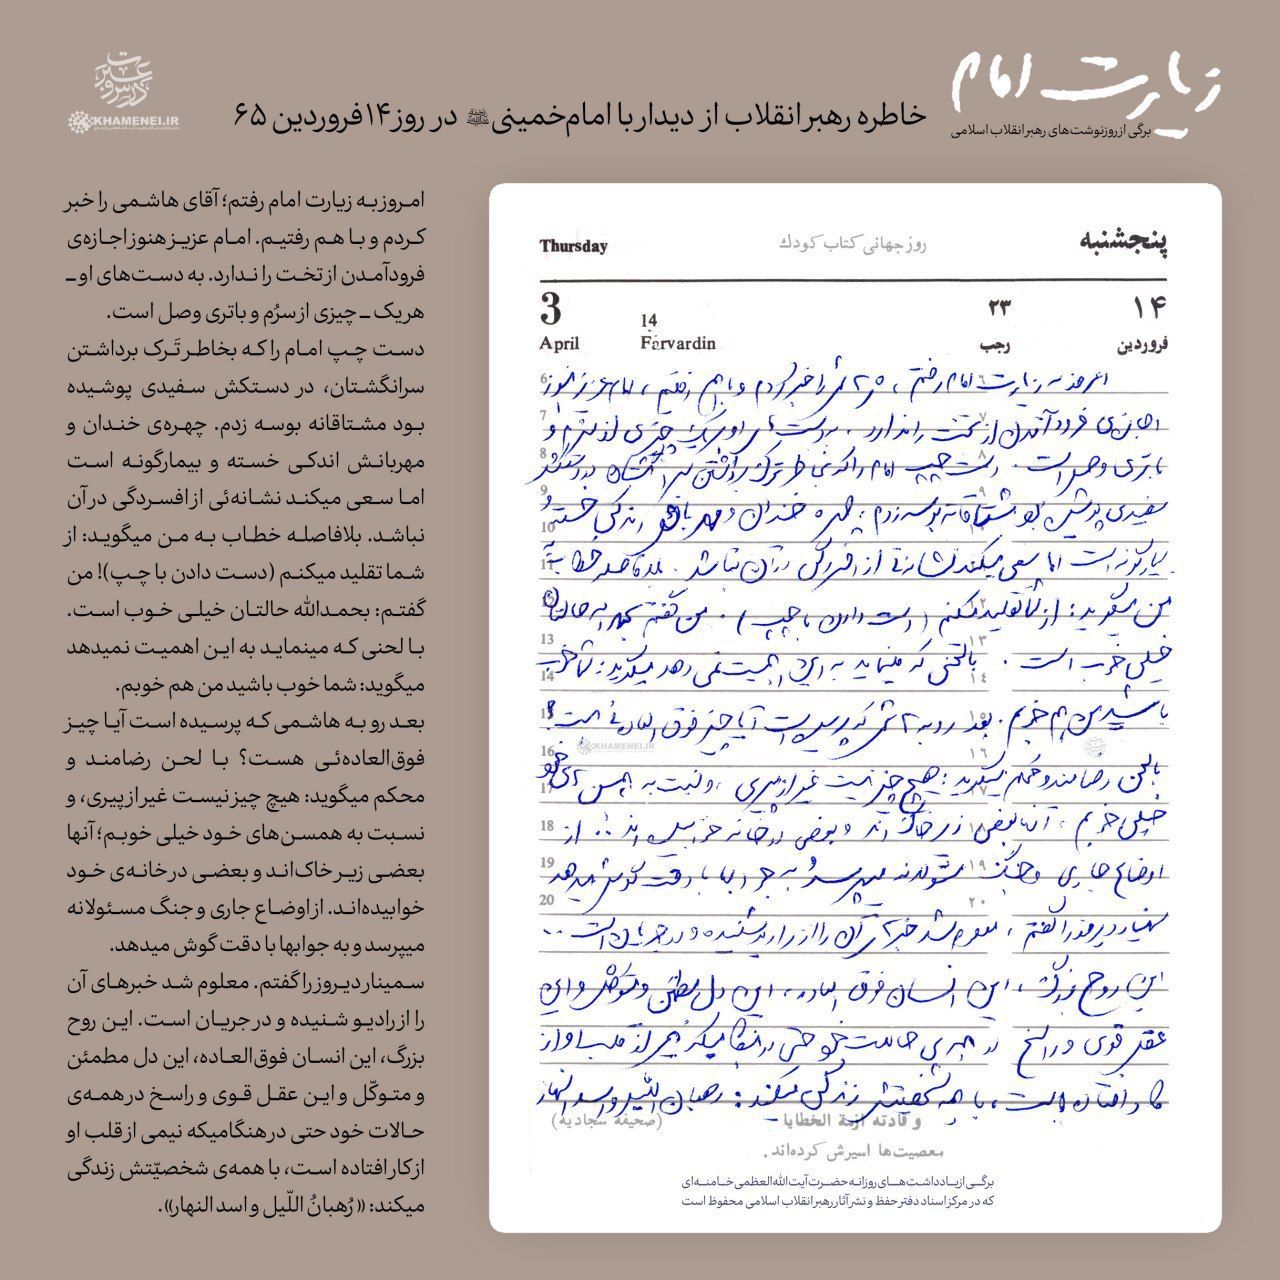 زیارت امام
برگی از روزنوشت‌های رهبر انقلاب اسلامی
خاطره رهبر انقلاب از دیدار با امام‌خمینی در روز ۱۴ فروردین ۶۵
درس و عبرت
KHAMENEI.IR
امروز به زیارت امام رفتم؛ آقای هاشمی را خبر
کردم و با هم رفتیم. امام عزیز هنوز اجازه‌ی
فرودآمدن از تخت را ندارد. به دست‌های او ــ
هریک ــ چیزی از سرُم و باتری وصل است.
دست چپ امام را که بخاطر تَرک برداشتن
سرانگشتان، در دستکش سفیدی پوشیده
بود مشتاقانه بوسه زدم. چهره‌ی خندان و
مهربانش اندکی خسته و بیمارگونه است
اما سعی میکند نشانه‌ئی از افسردگی در آن
نباشد. بلافاصله خطاب به من میگوید: از
شما تقلید میکنم (دست دادن با چپ)! من
گفتم: بحمدالله حالتان خیلی خوب است.
با لحنی که مینماید به این اهمیت نمیدهد
میگوید: شما خوب باشید من هم خوبم.
بعد رو به هاشمی که پرسیده است آیا چیز
فوق‌العاده‌ئی هست؟ با لحن رضامند و
محکم میگوید: هیچ چیز نیست غیر از پیری، و
نسبت به همسن‌های خود خیلی خوبم؛ آنها
بعضی زیر خاک‌اند و بعضی در خانه‌ی خود
خوابیده‌اند. از اوضاع جاری و جنگ مسئولانه
میپرسد و به جوابها با دقت گوش میدهد.
سمینار دیروز را گفتم. معلوم شد خبرهای آن
را از رادیو شنیده و در جریان است. این روح
بزرگ، این انسان فوق‌العاده، این دل مطمئن
و متوکّل و این عقل قوی و راسخ در همه‌ی
حالات خود حتی در هنگامیکه نیمی از قلب او
از کار افتاده است، با همه‌ی شخصیّتش زندگی
میکند: «رُهبانُ اللّیل و اسد النهار».
پنجشنبه روز جهانی کتاب کودك Thursday
۱۴ ۲۳ 14 3
فروردین رجب Farvardin April
امروز به زیارت امام رفتم، هاشمی را خبر کردم و با هم رفتیم، امام عزیز هنوز
اجازه‌ی فرود آمدن از تخت را ندارد. به دست‌های او هریک چیزی از سرم و
باتری وصل است. دست چپ امام را که بخاطر ترک برداشتن سر انگشتان در دستکش
سفیدی پوشیده بود مشتاقانه بوسه زدم، چهره خندان و مهربانش اندکی خسته و
بیمارگونه است اما سعی میکند نشانه‌ئی از افسردگی در آن نباشد. بلافاصله خطاب به
من میگوید: از شما تقلید میکنم (دست دادن با چپ). من گفتم بحمدالله حالتان
خیلی خوب است. با لحنی که مینماید به این اهمیت نمی‌دهد میگوید: شما خوب
باشید من هم خوبم. بعد رو به هاشمی که پرسیده است آیا چیز فوق العاده‌ئی هست؟
با لحن رضامند و محکم میگوید: هیچ چیز نیست غیر از پیری، و نسبت به همسن‌های خود
خیلی خوبم، آنها بعضی زیر خاک‌اند و بعضی در خانه خوابیده‌اند. از
اوضاع جاری و جنگ مسئولانه میپرسد و به جوابها با دقت گوش میدهد
سمینار دیروز را گفتم، معلوم شد خبرهای آن را از رادیو شنیده و در جریان است..
این روح بزرگ، این انسان فوق العاده، این دل مطمئن و متوکل و این
عقل قوی و راسخ در همه‌ی حالات خود حتی در هنگامیکه نیمی از قلب او از
کار افتاده است، با همه شخصیتش زندگی میکند: رهبان اللیل و اسد النهار
و قادته ازمة الخطایا (صحیفه سجادیه)
معصیت‌ها اسیرش کرده‌اند.
برگی از یادداشت‌های روزانه حضرت آیت‌الله‌العظمی خامنه‌ای
که در مرکز اسناد دفتر حفظ و نشر آثار رهبر انقلاب اسلامی محفوظ است